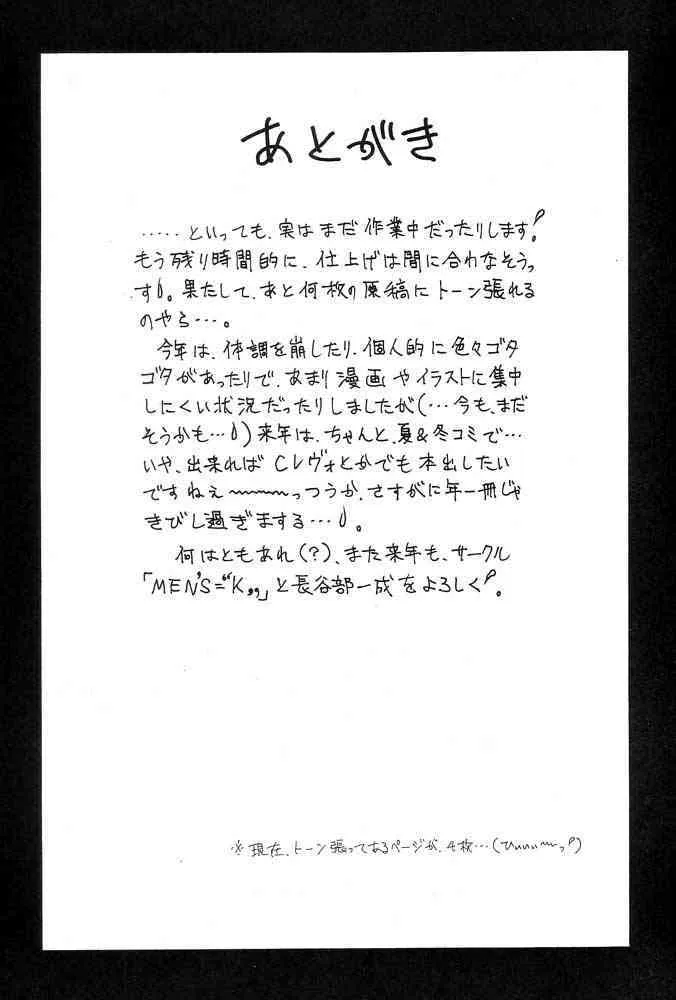 あとがき
‥‥‥といっても、実はまだ作業中だったりします!
もう残り時間的に、仕上げは間に合わなそうっ
す。果たして、あと何枚の原稿にトーン張れる
のやら…。
今年は、体調を崩したり、個人的に色々ゴタ
ゴタがあったりで、あまり漫画やイラストに集中
しにくい状況だったりしましたが(…今も、まだ
そうかも…)来年は、ちゃんと、夏&冬コミで…
いや、出来ればCレヴォとかでも本出したい
ですねぇ〜〜〜〜っつうか、さすがに年一冊じゃ
きびし過ぎまする…。
何はともあれ(?)、また来年も、サークル
「MEN'S="K„」と長谷部一成をよろしく!。
※現在、トーン張ってあるページが、4枚…(ひぃぃぃ〜っ!)